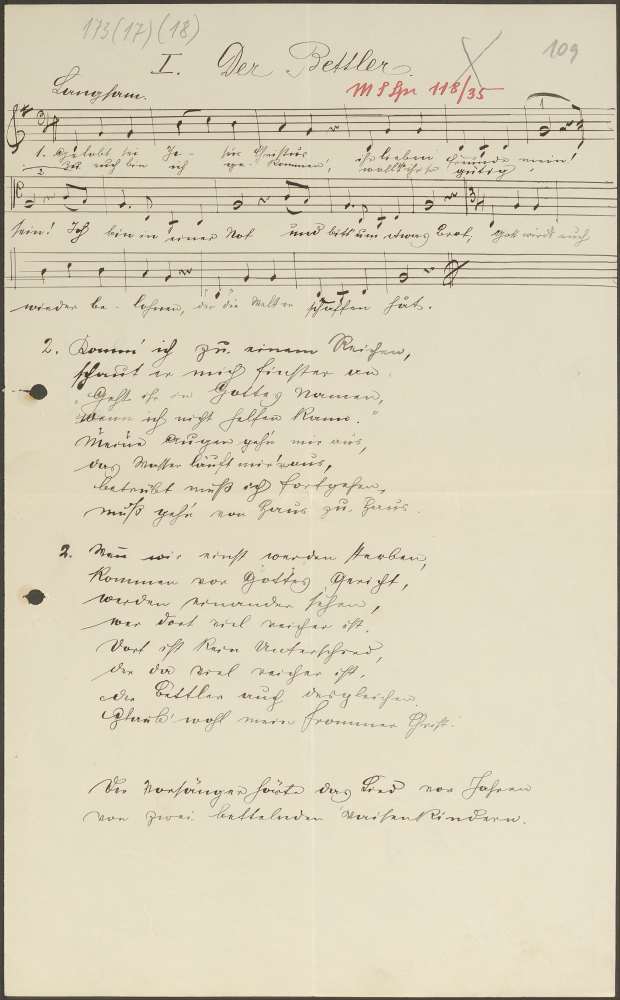 173(17)(18)
109
I. Der Bettler.
Langsam.
M S Gr 118/35
1. Gelobt sei Je- sus Christus, ihr lieben Freunde mein!
2. Zu euch bin ich ge- kommen, wollt ihr gütig
sein! Ich bin in einer Not und bitt' um etwas Brot, Gott wird's euch
wieder be- lohnen, der die Welt erschaffen hat.
2. Komm' ich zu einem Reichen,
schaut er mich finster an.
"Geht ihr in Gottes Namen,
wenn ich nicht helfen kann."
Meine Augen gehn mir aus,
das Wasser läuft mir 'raus,
betrübt muß ich fortgehen,
muß geh'n von Haus zu Haus.
3. Wenn wir einst werden sterben,
kommen vor Gottes Gericht,
werden einander sehen,
wer dort viel reicher ist.
Dort ist kein Unterschied,
der da viel reicher ist,
die Bettler auch desgleichen.
Glaub' wohl mein frommer Christ.
Die Vorsänger hörte das Lied vor Jahren
von zwei bettelnden Waisenkindern.